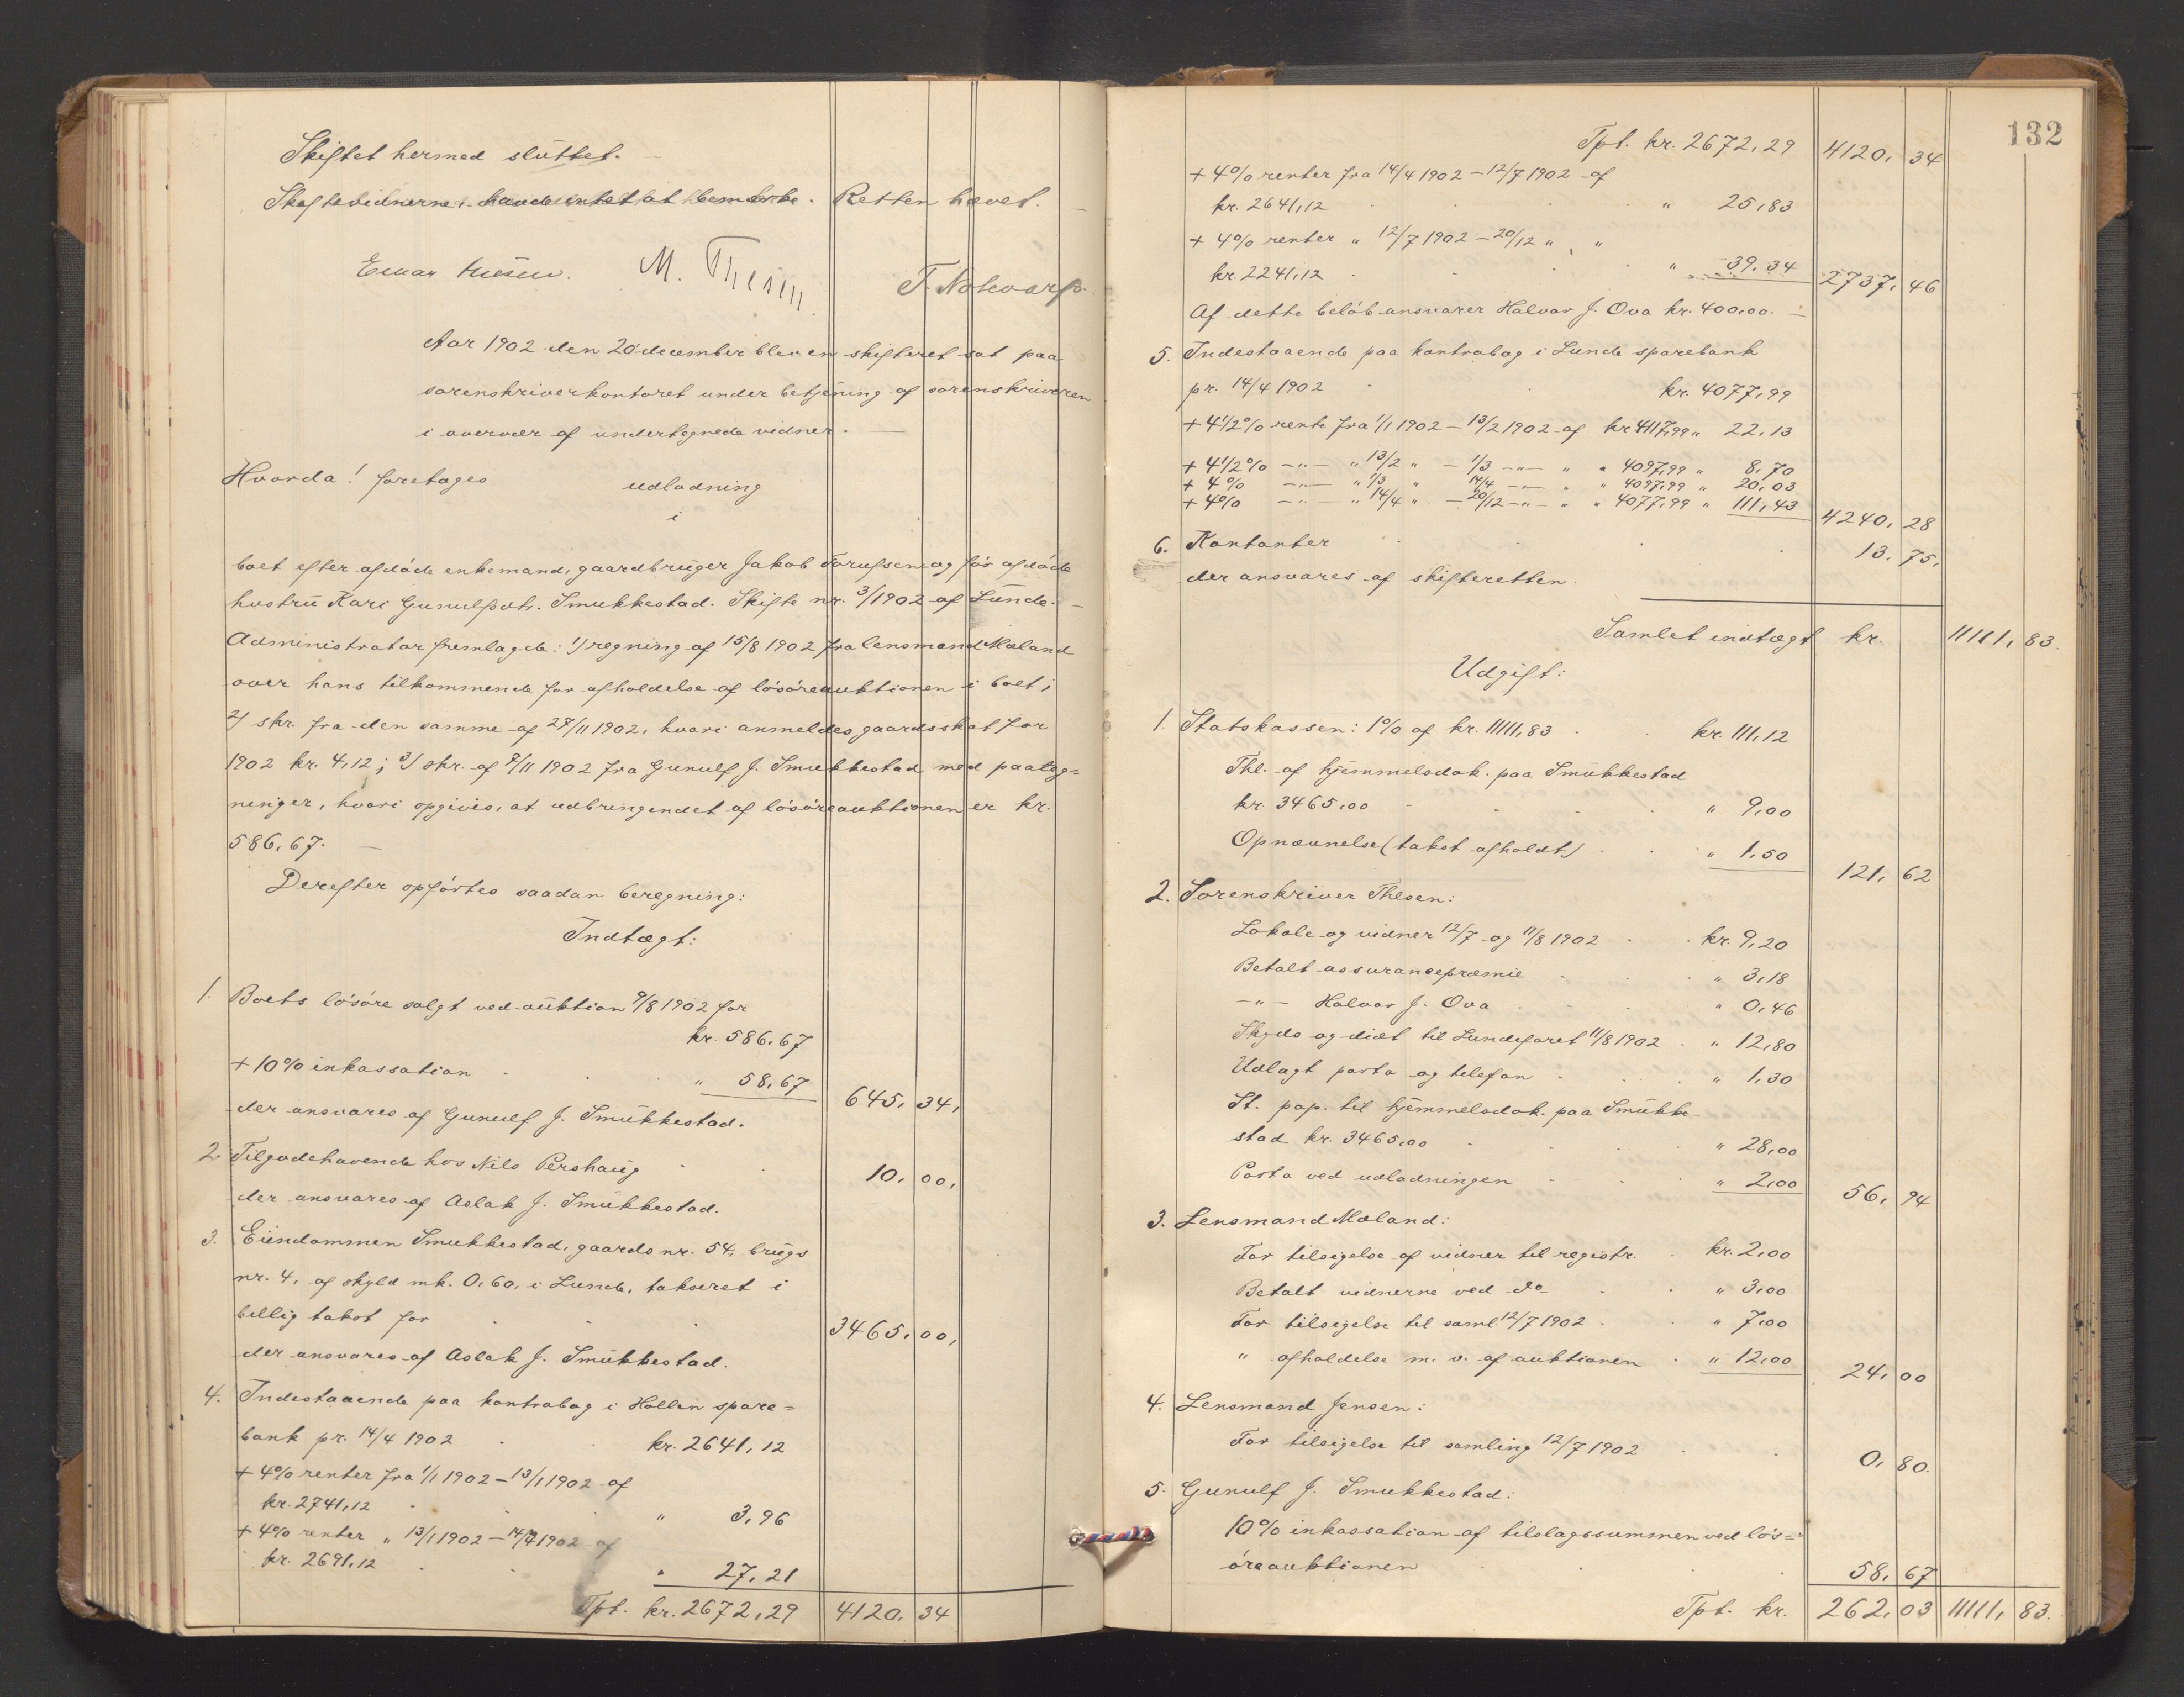 Skiftet hermed slüttet. —
Skiftevidnerne havde intet at bemærke. Retten hævet. —
M. Thesen T. Notevarp.
Aar 1902 den 20 december blev en skifteret sat paa
sorenskriverkontoret under betjening af sorenskriveren
i overvær af undertegnede vidner. —
Hvorda! foretages udlodning
i
boet efter afdöde enkemand, gaardbrüger Jakob Torufsen og för afdöde
hustrü Kari Gunulfsdtr. Smukkestad. Skifte nr. 3/1902 af Lünde. —
Administrator fremlagde: 1) regning af 15/8 1902 fra lensmand Moland
over hans tilkommende for afholdelse af lösöreauktionen i boet;
2) skr. fra den samme af 27/11 1902, hvori anmeldes gaardsskat for
1902 kr. 4,12; 3) skr. af 7/11 1902 fra Gunulf J. Smukkestad med paateg=
ninger, hvori opgives, at udbringendet af lösöreauktionen er kr.
586,67. —
Derefter opförtes saadan beregning:
Indtægt:
1. Boets lösöre solgt ved auktion 9/8 1902 for
kr. 586,67
+ 10% inkassation " 58,67 645, 34,
der ansvares af Gunulf J. Smükkestad.
2. Tilgodehavende hos Nils Pershaüg 10, 00,
der ansvares af Aslak J. Smükkestad.
3. Eiendommen Smukkestad, gaards nr. 54, brügs
nr. 4, af skyld mk. 0,60, i Lunde, takseret i
billig takst for 3465, 00,
der ansvares af Aslak J. Smükkestad.
4. Indestaaende paa kontrabog i Hollen spare=
bank pr. 14/4 1902 kr. 2641,12
+ 4% renter fra 1/1 1902 – 13/1 1902 af
kr. 2741,12 " 3,96
+ 4% renter " 13/1 1902 – 14/4 1902 af
kr. 2691,12 " 27,21
Tpt. kr. 2672,29 4120, 34
132
Tpt. kr. 2672,29 4120, 34
+ 4% renter fra 14/4 1902 – 12/7 1902 af
kr. 2641,12 " 25,83
+ 4% renter " 12/7 1902 – 20/12 " "
kr. 2241,12 " 39,34 2737, 46
Af dette belöb ansvarer Halvor J. Ova kr. 400,00. —
5. Indestaaende paa kontrabog i Lunde sparebank
pr. 14/4 1902 kr. 4077,99
+ 4 1/2% rente fra 1/1 1902 – 13/2 1902 af kr 4117,99 " 22,13
+ 4 1/2% —"— " 13/2 " – 1/3 —"— " " 4097,99 " 8,70
+ 4% —"— " 1/3 " 14/4 —"— " " 4097,99 " 20,03
+ 4% —"— " 14/4 " – 20/12 —"— " " 4077,99 " 111,43 4240, 28
6. Kontanter 13, 75,
der ansvares af skifteretten.
Samlet indtægt kr. 11111, 83.
Udgift:
1. Statskassen: 1% af kr. 11111,83 kr. 111,12
Thl. af hjemmelsdok. paa Smükkestad
kr. 3465,00 " 9,00
Opnævnelse (takst afholdt) " 1,50 121, 62
2. Sorenskriver Thesen:
Lokale og vidner 12/7 og 11/8 1902 kr. 9,20
Betalt assurancepræmie " 3,18
—"— Halvor J. Ova " 0,46
Skyds og diæt til Lundefaret 11/8 1902 " 12,80
Udlagt porto og telefon " 1,30
St. pap. til hjemmelsdok. paa Smükke-
stad kr. 3465,00 " 28,00
Porto ved udlodningen " 2,00 56, 94
3. Lensmand Moland:
For tilsigelse af vidner til registr. kr. 2,00
Betalt vidnerne ved do " 3,00
For tilsigelse til saml. 12/7 1902 " 7,00
" afholdelse m. v. af auktionen " 12,00 24, 00
4. Lensmand Jensen:
For tilsigelse til samling 12/7 1902 0, 80.
5. Gunulf J. Smukkestad:
10% inkassation af tilslagssummen ved lös=
öreauktionen 58, 67
Tpt. kr. 262, 03 11111, 83.